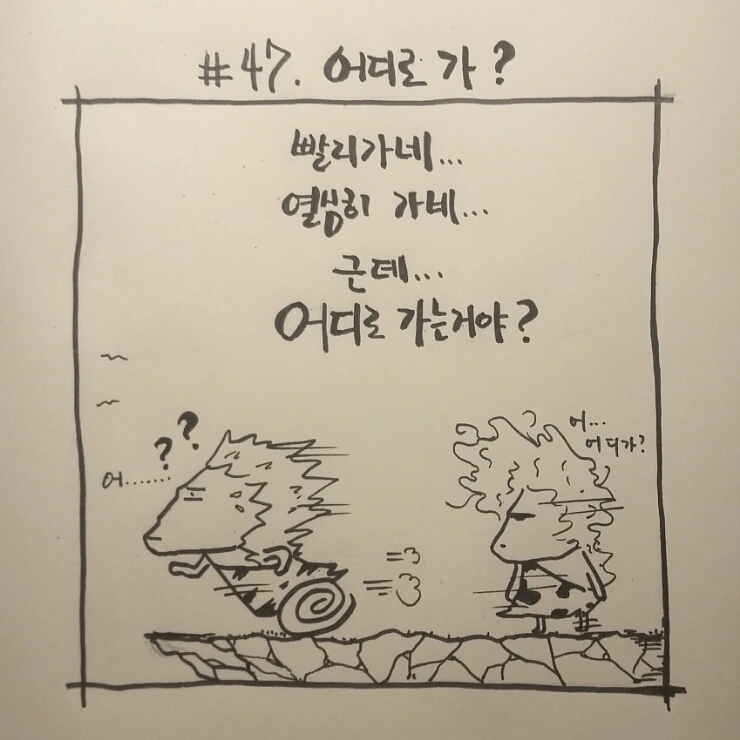 #47. 어디로 가?
빨리가네...
열심히 가네...
근데...
어디로 가는거야?
??
어.......
어...
어디가?